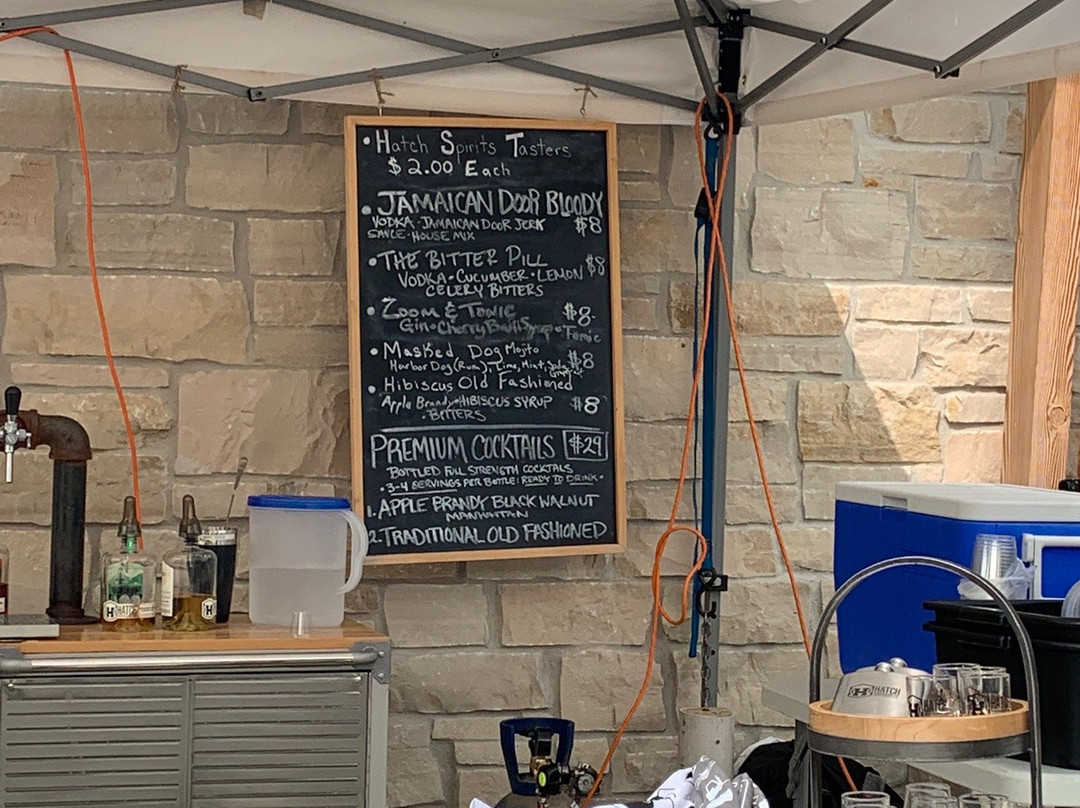 • Hatch Spirits Tasters
$2.00 Each
• JAMAICAN DOOR BLOODY
VODKA - JAMAICAN DOOR JERK $8
SAUCE - HOUSE MIX
• THE BITTER PILL $8
VODKA • CUCUMBER • LEMON
CELERY BITTERS
• ZOOM & TONIC $8
Gin • Cherry Syrup • Tonic
• Masked Dog Mojito $8
Harbor Dog (Rum), Lime, Mint, Soda,
• Hibiscus Old Fashioned
Apple Brandy • HIBISCUS SYRUP $8
• BITTERS
PREMIUM COCKTAILS $29
BOTTLED FULL STRENGTH COCKTAILS
• 3-4 SERVINGS PER BOTTLE: READY TO DRINK •
1. APPLE BRANDY BLACK WALNUT
MANHATTAN
2. TRADITIONAL OLD FASHIONED
HATCH
HATCH